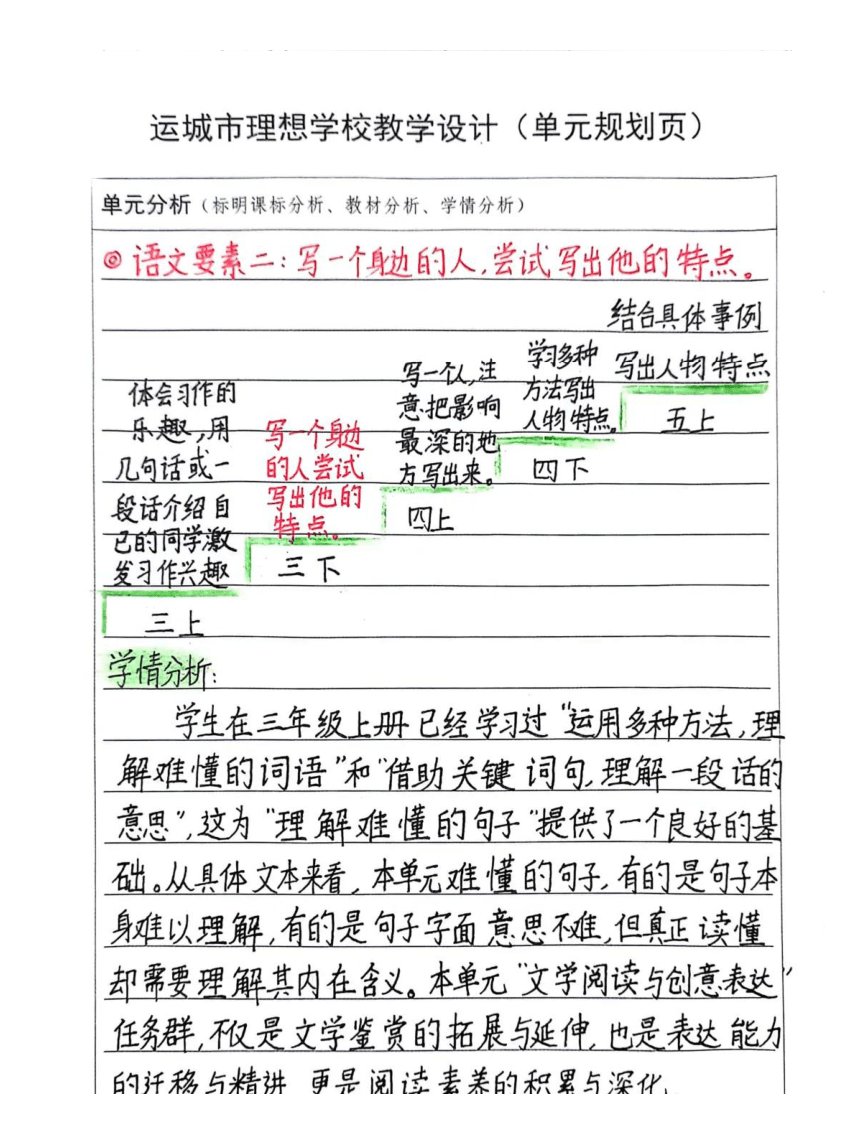 运城市理想学校教学设计（单元规划页）
单元分析（标明课标分析、教材分析、学情分析）
◎语文要素二：写一个身边的人，尝试写出他的特点。
体会习作的
乐趣，用
几句话或一
段话介绍自
己的同学激
发习作兴趣
三上
写一个身边
的人尝试
写出他的
特点。
三下
写一个人，注
意把影响
最深的地
方写出来。
四上
学习多种
方法写出
人物特点。
四下
结合具体事例
写出人物特点
五上
学情分析：
学生在三年级上册已经学习过“运用多种方法，理
解难懂的词语”和“借助关键词句，理解一段话的
意思”，这为“理解难懂的句子”提供了一个良好的基
础。从具体文本来看，本单元难懂的句子，有的是句子本
身难以理解，有的是句子字面意思不难，但真正读懂
却需要理解其内在含义。本单元“文学阅读与创意表达”
任务群，不仅是文学鉴赏的拓展与延伸，也是表达能力
的迁移与精进，更是阅读素养的积累与深化